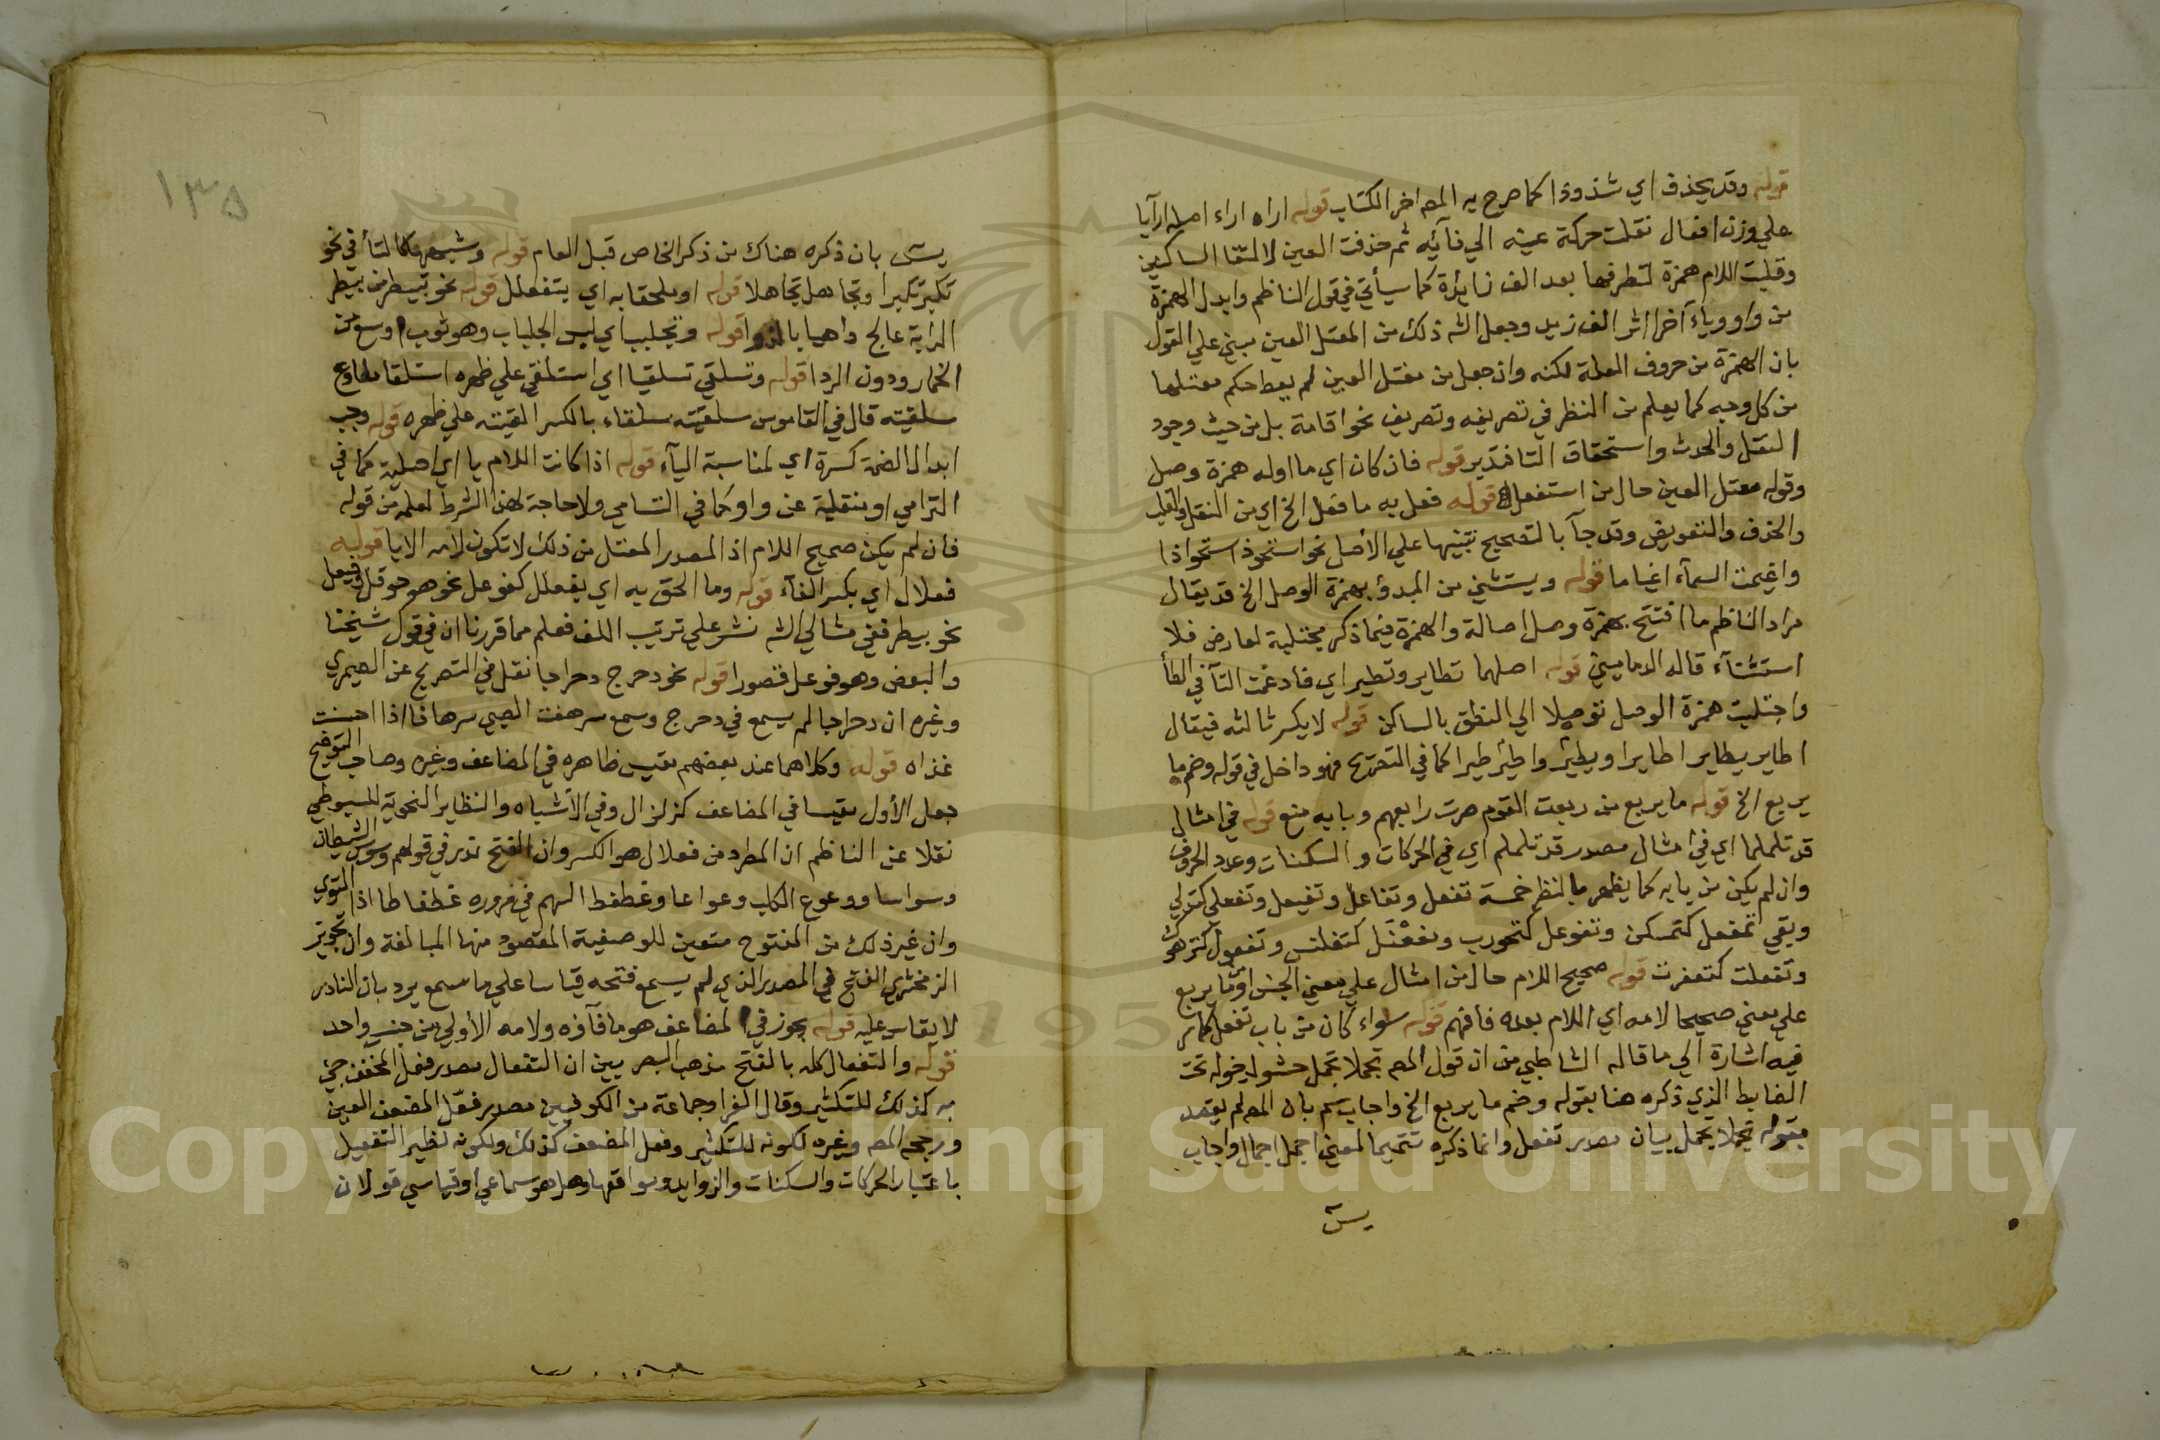 قوله وقد يحذف اي شذوذا كما صرح به المص اخر الكتاب قوله اراه اراء اصله ارآيا
علي وزن افعال نقلت حركة عينه الي فآئه ثم حذفت العين لالتقا الساكنين
وقلبت اللام همزة لتطرفها بعد الف زايدة كما سيأتي في قول الناظم وابدل الهمزة
من واو وياء آخرا اثر الف زيد وجعل الش ذلك من المعتل العين مبني علي القول
بان الهمزة من حروف العلة لكنه وان جعل من معتل العين لم يعط حكم معتلها
من كل وجه كما يعلم من النظر في تصريفه وتصريف نحو اقامة بل من حيث وجود
النقل والحذف واستحقاق التا فتدبر قوله فان كان اي ما اوله همزة وصل
وقوله معتل العين حال من استفعل قوله فعل به ما فعل الخ اي من النقل والقلب
والحذف والتعويض وقد جآ بالتصحيح تنبيها علي الأصل نحو استحوذ استحواذا
واغيمت السمآء اغياما قوله ويستثني من المبدؤ بهمزة الوصل الخ قد يقال
مراد الناظم ما افتتح بهمزة وصل اصالة والهمزة فيما ذكر مجتلبة لعارض فلا
استثنآء قاله الدماميني قوله اصلهما تطاير وتطير اي فادغمت التآ في الطأ
واجتلبت همزة الوصل توصلا الي النطق بالساكن قوله لا يكسر ثالثه فيقال
اطاير يطاير اطايرا ويطير واطير طيرا كما في التصريح فهو داخل في قوله وضم ما
يربع الخ قوله ما يربع من ربعت القوم صرت رابعهم وبابه منع قوله في امثال
قد تلملما اي في امثال مصدر قد تلملم اي في الحركات والسكنات وعدد الحروف
وان لم يكن من بابه كما يظهر بالنظر خمسة تفعل وتفاعل وتفيعل وتفعلي كتولي
وبقي تمفعل كتمسكن وتفوعل كتجورب وتفعنل كتقلنس وتفعول كترهوك
وتفعلت كتعفرت قوله صحيح اللام حال من امثال علي معني الجنس او من ما يربع
علي معني صحيحا لامه اي اللام بعده فافهم قوله سواء كان من باب تفعل كما مر
فيه اشارة الي ما قاله الشاطبي من ان قول المص تجملا تجمل حشو لدخوله تحت
الضابط الذي ذكره هنا بقوله وضم ما يربع الخ واجاب سم بان المص لم يقصد
بقوله تجملا تجمل بيان مصدر تفعل وانما ذكره تتميما لمعني اجمل اجمال واجاب
يس
١٣٥
يس بان ذكره هناك من ذكر الخاص قبل العام قوله وشبههما كالتأ في نحو
تكبر تكبرا وتجاهل تجاهلا قوله او ملحقا به اي بتفعلل قوله نحو تبيطر من بيطر
الدابة عالج داهيا بالدوا قوله وتجلبب اي لبس الجلباب وهو ثوب اوسع من
الخمار ودون الردا قوله وتسلقي تسلقيا اي استلقي علي ظهره استلقا مطاوع
سلقيته قال في القاموس سلقيته سلقاء بالكسر القيته علي ظهره قوله وجب
ابدال الضمة كسرة اي لمناسبة اليآء قوله اذا كانت اللام يا اي اصلية كما في
الترامي او منقلبة عن واو كما في التسامي ولا حاجة لهذا الشرط لعلمه من قوله
فان لم يكن صحيح اللام اذ المصدر المعتل من ذلك لا تكون لامه الا يا قوله
فعلال اي بكسر الفآء قوله وما الحق به اي بفعلل كفوعل نحو هو حوقل وفيعل
نحو بيطر ففي مثالي الش نشر علي ترتيب اللف فعلم مما قررنا ان في قول شيخنا
والبعض وهو فوعل قصورا قوله نحو دحرج دحراجا نقل في التصريح عن الصيمري
وغيره ان دحراجا لم يسمع في دحرج وسمع سرهفت الصبي سرهافا اذا احسنت
غذاه قوله وكلاهما عند بعضهم مقيس ظاهره في المضاعف وغيره وصاحب التوضيح
جعل الأول مقيسا في المضاعف كزلزال وفي الأشباه والنظاير النحوية للسيوطي
نقلا عن الناظم ان المطرد من فعلال هو الكسر وان الفتح ندر في قولهم وسوس الشيطان
وسواسا ووعوع الكلب وعواعا وعظعظ السهم في مروره عظعاظا اذا التوي
وان غير ذلك من المفتوح متعين للوصفية المقصود منها المبالغة وان تجويز
الزمخشري الفتح في المصدر الذي لم يسمع فتحه قياسا علي ما سمع يرد بان النادر
لا يقاس عليه قوله يجوز في المضاعف هو ما فآؤه ولامه الأولي من جنس واحد
قوله والتفعال كله بالفتح مذهب البصريين ان التفعال مصدر فعل المخفف جئ
به كذلك للتكثير وقال الفرا وجماعة من الكوفيين مصدر فعّل المضعف العين
ورجحه المص وغيره لكونه للتكثير وفعل المضعف كذلك ولكونه نظير التفعيل
باعتبار الحركات والسكنات والزوايد ومواقعها وهل هو سماعي او قياسي قولان